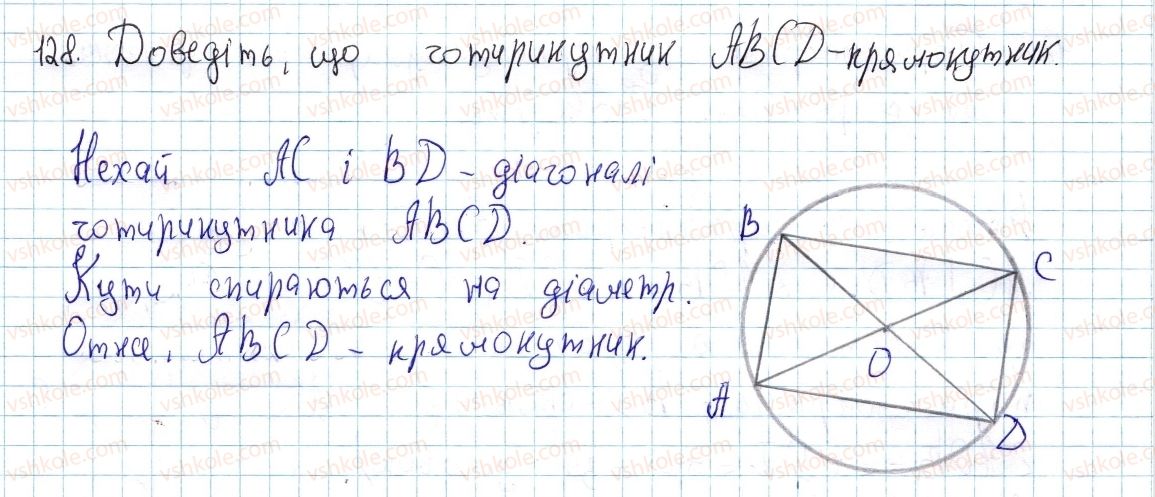 128. Доведіть, що чотирикутник ABCD-прямокутник.
Нехай AC і BD - діагоналі
чотирикутника ABCD.
Кути спираються на діаметр.
Отже, ABCD - прямокутник.
B
C
O
A
D